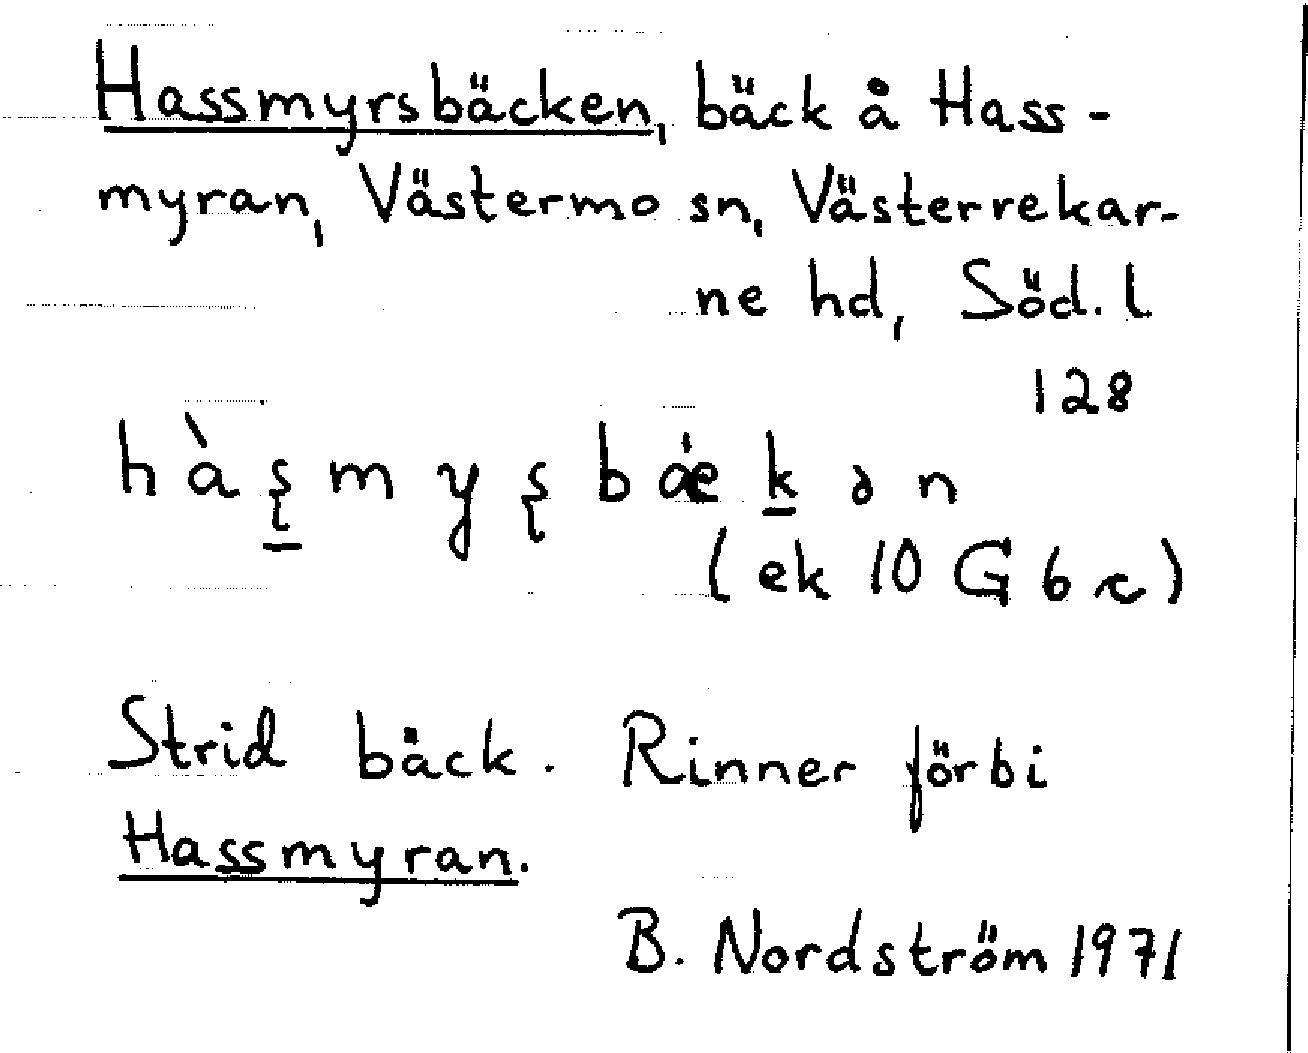 Hassmyrsbäcken, bäck å Hass-
myran, Västermo sn, Västerrekar-
ne hd, Söd. l
128
hàʂ̲myʂbǽk̲ən
(ek 10 G 6 c)
Strid bäck. Rinner förbi
Hassmyran.
B. Nordström 1971